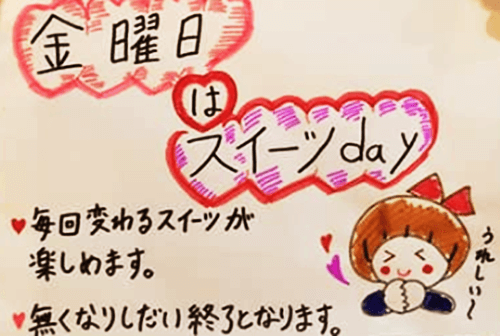 金曜日
は
スイーツday
♥毎回変わるスイーツが
楽しめます。
うれしい〜
♥無くなりしだい終了となります。